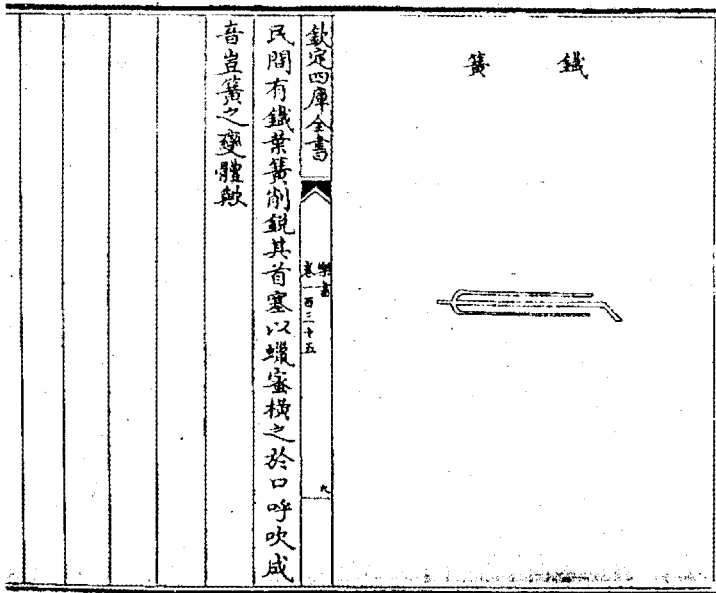 鐵簧
欽定四庫全書
樂書
卷一百三十五
九
民間有鐵葉簧削鋭其首塞以蠟蜜橫之於口呼吹成
音豈簧之變體歟